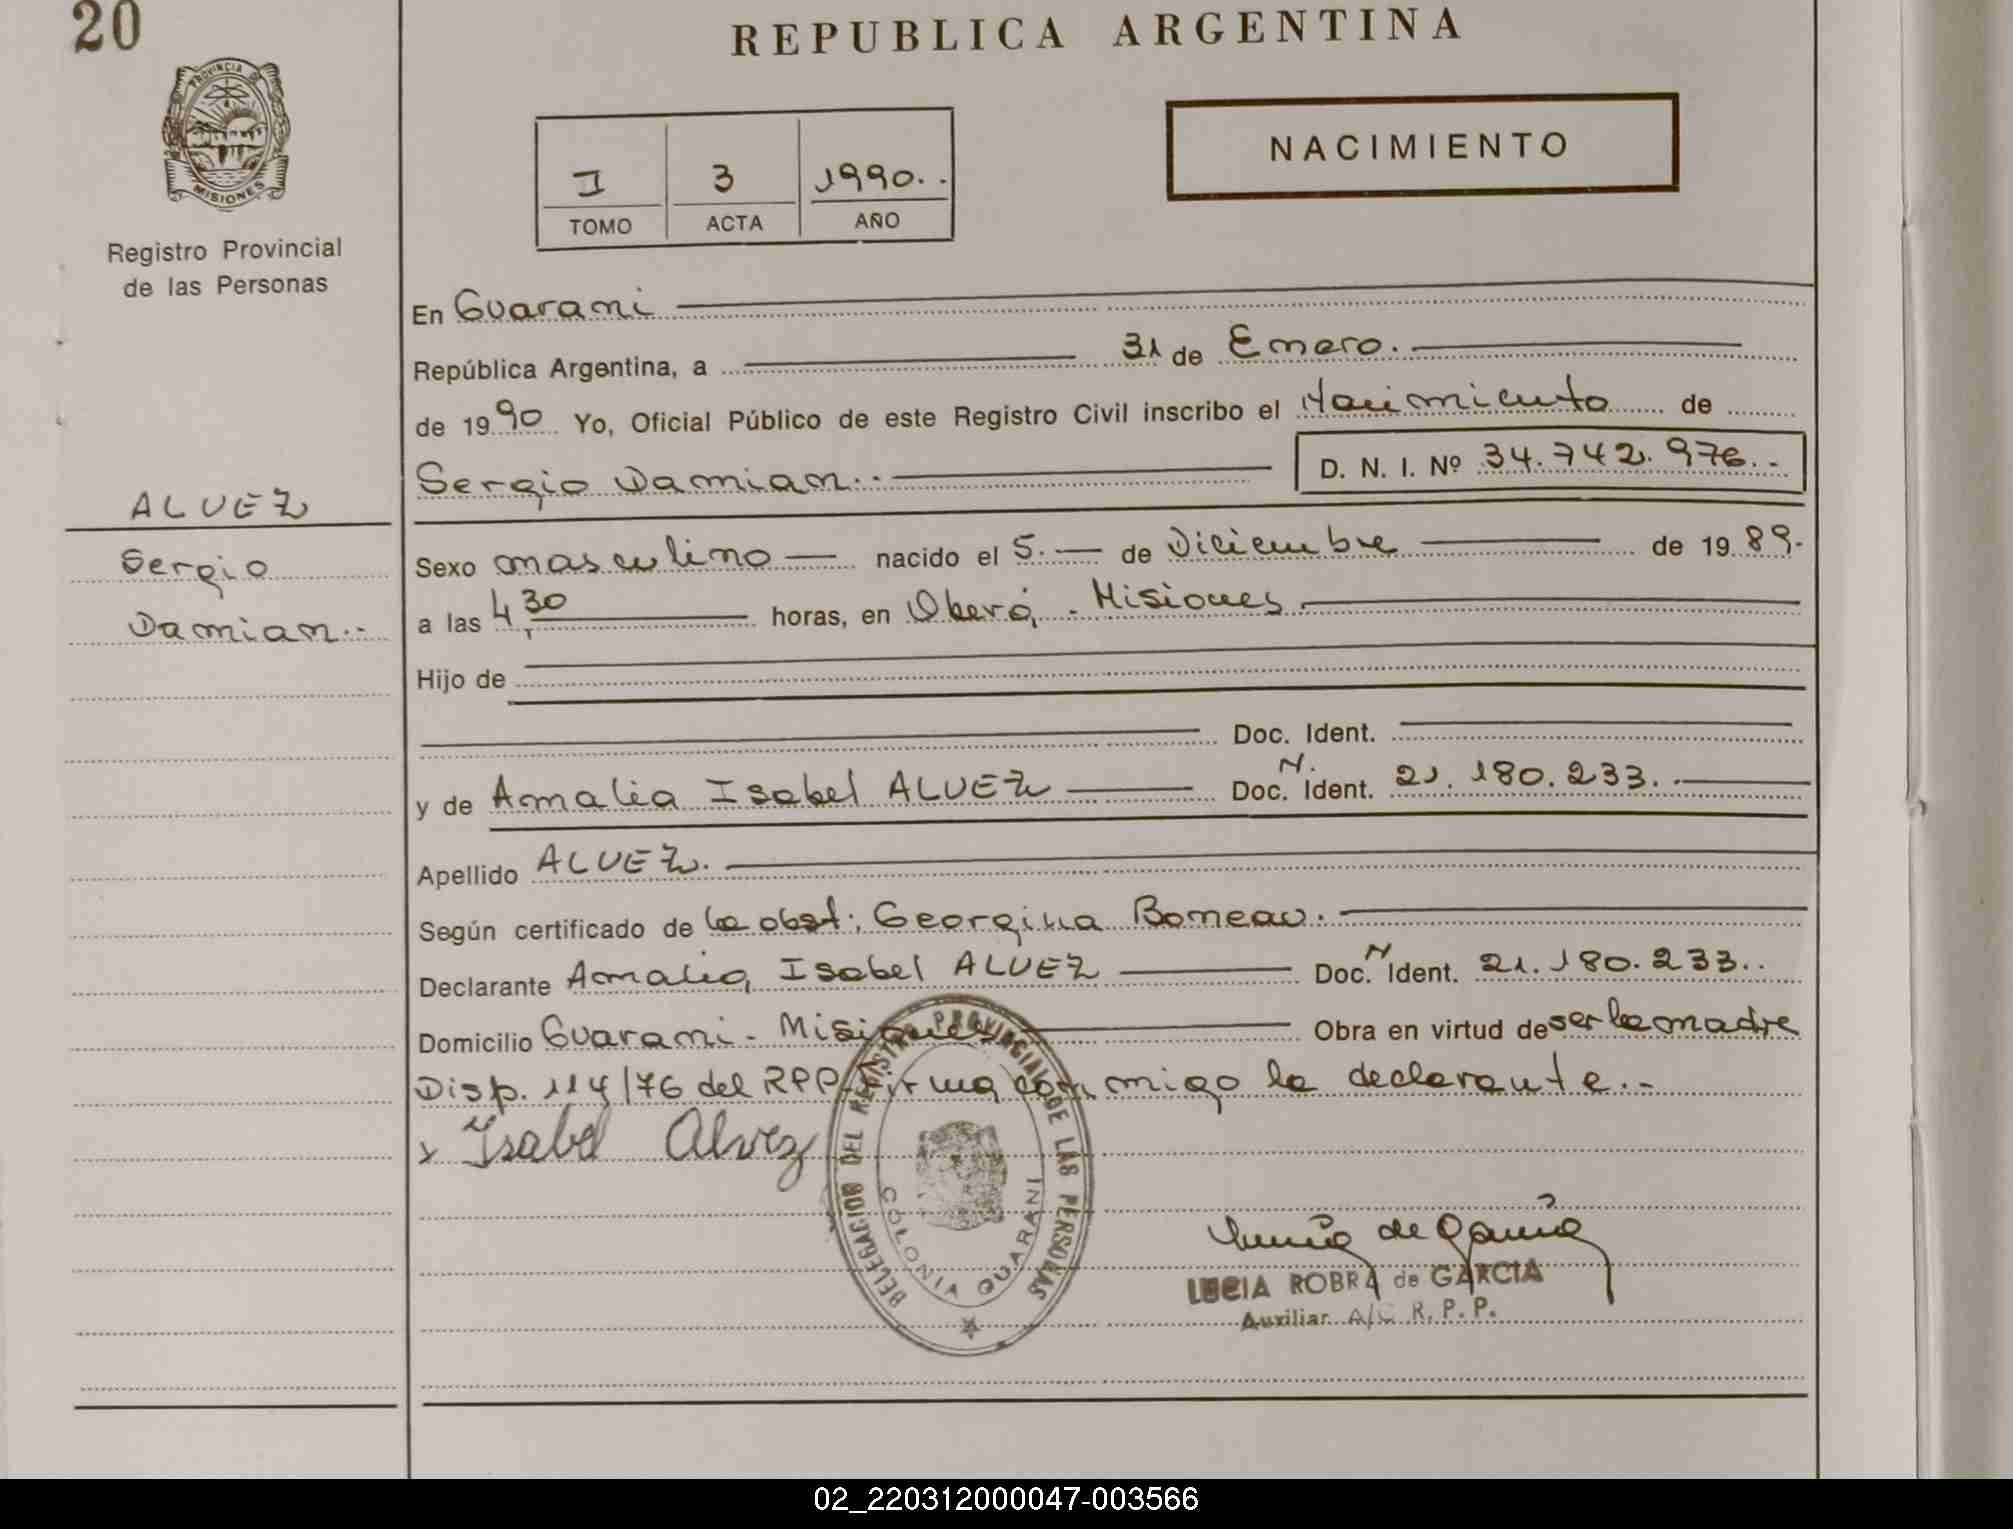 20
REPUBLICA ARGENTINA
PROVINCIA DE
MISIONES
Registro Provincial
de las Personas
I 3 1990.-
TOMO ACTA AÑO
NACIMIENTO
En Guarani
República Argentina, a 31 de Enero.
de 1990 Yo, Oficial Público de este Registro Civil inscribo el Nacimiento de
Sergio Damian.- D. N. I. Nº 34.742.976.-
ALVEZ
Sergio
Damian.-
Sexo masculino nacido el 5. de Diciembre de 1989.
a las 4,30 horas, en Oberá, - Misiones
Hijo de
Doc. Ident.
y de Amalia Isabel ALVEZ Doc. N. Ident. 21.180.233.
Apellido ALVEZ.
Según certificado de la obst; Georgina Boneau.
Declarante Amalia Isabel ALVEZ Doc. N Ident. 21.180.233..
Domicilio Guarani - Misiones Obra en virtud de ser la madre
Disp. 114/76 del RPP- firma conmigo la declarante.-
x Isabel Alvez
DELEGACION DEL REGISTRO PROVINCIAL DE LAS PERSONAS
COLONIA GUARANI
LUCIA ROBRA de GARCIA
Auxiliar A/C R. P. P.
02_220312000047-003566